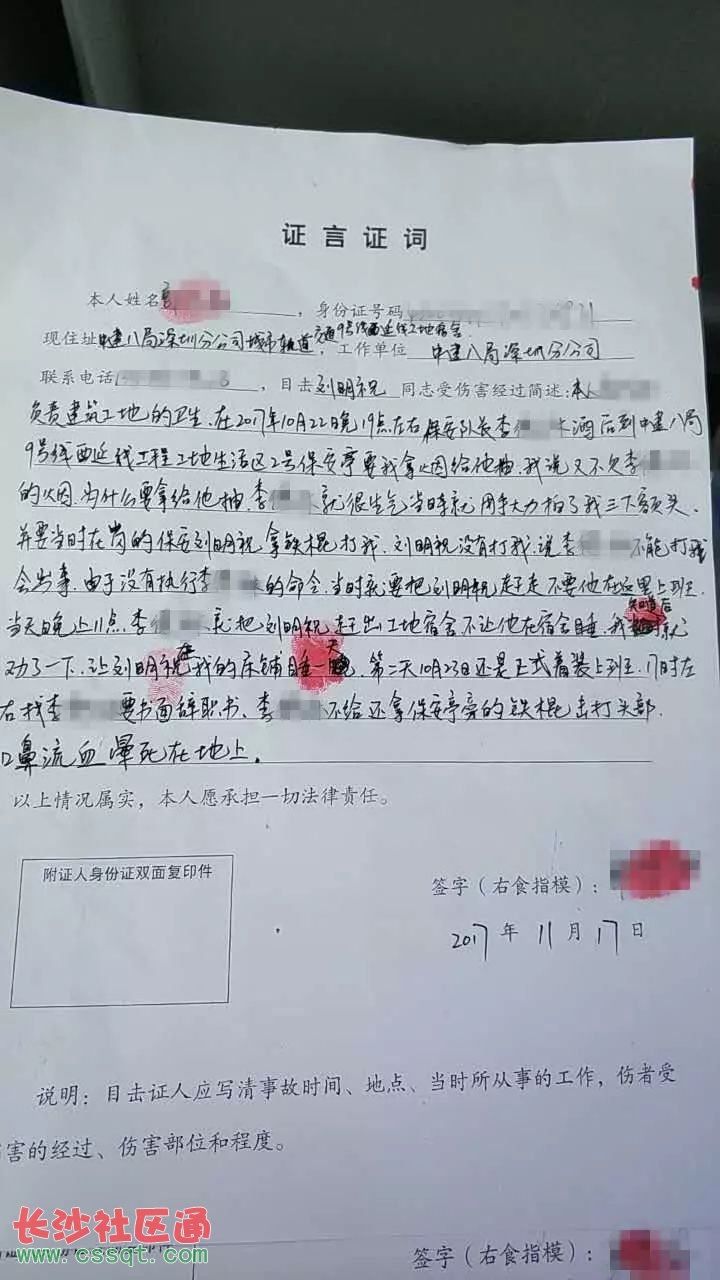 证言证词
本人姓名，身份证号码
现住址中建八局深圳分公司城市轨道交通9号线西延线工地宿舍，工作单位 中建八局深圳分公司
联系电话，目击刘明祝 同志受伤害经过简述：本人
负责建筑工地的卫生．在2017年10月22日晚19点左右保安队长李 酒后到中建八局
9号线西延线工程工地生活区2号保安亭要我拿烟给他抽．我说又不欠李
的烟．为什么要拿给他抽．李 就很生气当时就用手大力拍了我三下额头．
并要当时在岗的保安刘明祝拿铁棍打我．刘明祝没有打我．说李 不能打我
会出事．由于没有执行李 的命令．当时就要把刘明祝赶走不要他在这里上班．
当天晚上11点．李 就把刘明祝赶出工地宿舍不让他在宿舍睡．我知道后就
劝了一下．让刘明祝在我的床铺睡一晚．第二天10月23日还是正式着装上班．17时左
右找李 要书面辞职书．李 不给还拿保安亭旁的铁棍击打头部．
口鼻流血晕死在地上．
以上情况属实，本人愿承担一切法律责任。
附证人身份证双面复印件
签字（右食指模）：
2017 年 11 月 17 日
说明：目击证人应写清事故时间、地点、当时所从事的工作，伤者受
害的经过、伤害部位和程度。
长沙社区通
www.cssqt.com
签字（右食指模）：